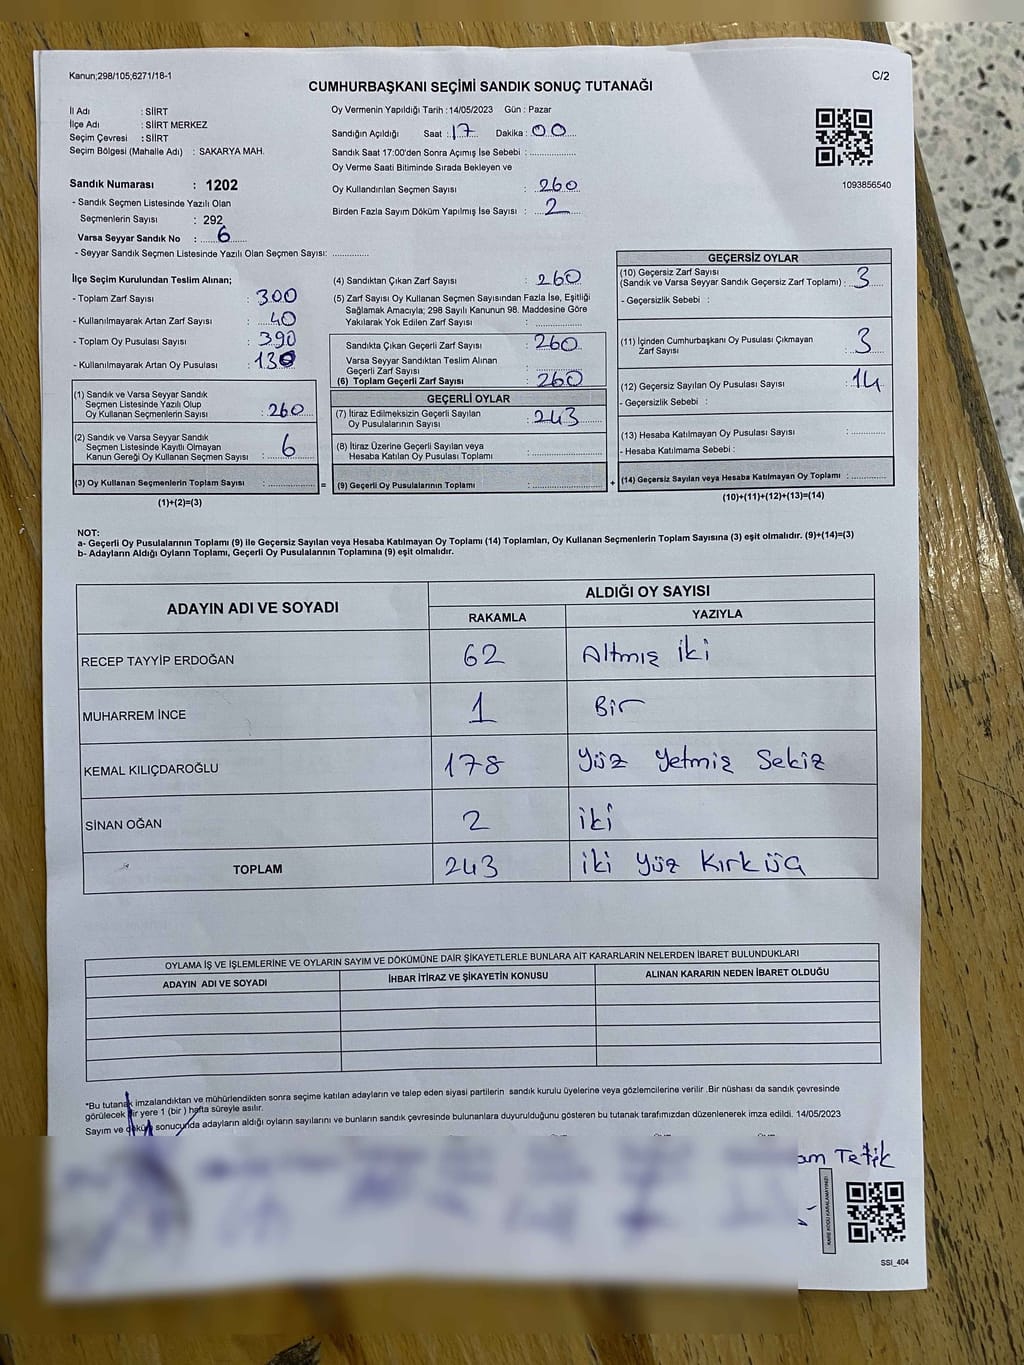 Kanun;298/105,6271/18-1
C/2
CUMHURBAŞKANI SEÇİMİ SANDIK SONUÇ TUTANAĞI
İl Adı : SİİRT
İlçe Adı : SİİRT MERKEZ
Seçim Çevresi : SİİRT
Seçim Bölgesi (Mahalle Adı) : SAKARYA MAH.
Sandık Numarası : 1202
- Sandık Seçmen Listesinde Yazılı Olan
Seçmenlerin Sayısı : 292
Varsa Seyyar Sandık No : 6
- Seyyar Sandık Seçmen Listesinde Yazılı Olan Seçmen Sayısı: ...............
Oy Vermenin Yapıldığı Tarih : 14/05/2023 Gün : Pazar
Sandığın Açıldığı Saat : 17 Dakika : 00
Sandık Saat 17:00'den Sonra Açımış İse Sebebi : ...............
Oy Verme Saati Bitiminde Sırada Bekleyen ve
Oy Kullandırılan Seçmen Sayısı : 260
Birden Fazla Sayım Döküm Yapılmış İse Sayısı : 2
1093856540
İlçe Seçim Kurulundan Teslim Alınan;
- Toplam Zarf Sayısı : 300
- Kullanılmayarak Artan Zarf Sayısı : 40
- Toplam Oy Pusulası Sayısı : 390
- Kullanılmayarak Artan Oy Pusulası : 130
(1) Sandık ve Varsa Seyyar Sandık
Seçmen Listesinde Yazılı Olup
Oy Kullanan Seçmenlerin Sayısı : 260
(2) Sandık ve Varsa Seyyar Sandık
Seçmen Listesinde Kayıtlı Olmayan
Kanun Gereği Oy Kullanan Seçmen Sayısı : 6
(3) Oy Kullanan Seçmenlerin Toplam Sayısı : ...............
(1)+(2)=(3)
=
(4) Sandıktan Çıkan Zarf Sayısı : 260
(5) Zarf Sayısı Oy Kullanan Seçmen Sayısından Fazla İse, Eşitliği
Sağlamak Amacıyla; 298 Sayılı Kanunun 98. Maddesine Göre
Yakılarak Yok Edilen Zarf Sayısı : ...............
Sandıkta Çıkan Geçerli Zarf Sayısı : 260
Varsa Seyyar Sandıktan Teslim Alınan
Geçerli Zarf Sayısı : ...............
(6) Toplam Geçerli Zarf Sayısı : 260
GEÇERLİ OYLAR
(7) İtiraz Edilmeksizin Geçerli Sayılan
Oy Pusulalarının Sayısı : 243
(8) İtiraz Üzerine Geçerli Sayılan veya
Hesaba Katılan Oy Pusulası Toplamı : ...............
(9) Geçerli Oy Pusulalarının Toplamı : ...............
+
GEÇERSİZ OYLAR
(10) Geçersiz Zarf Sayısı
(Sandık ve Varsa Seyyar Sandık Geçersiz Zarf Toplamı) : 3
- Geçersizlik Sebebi :
(11) İçinden Cumhurbaşkanı Oy Pusulası Çıkmayan
Zarf Sayısı : 3
(12) Geçersiz Sayılan Oy Pusulası Sayısı : 14
- Geçersizlik Sebebi :
(13) Hesaba Katılmayan Oy Pusulası Sayısı : ...............
- Hesaba Katılmama Sebebi :
(14) Geçersiz Sayılan veya Hesaba Katılmayan Oy Toplamı : ...............
(10)+(11)+(12)+(13)=(14)
NOT:
a- Geçerli Oy Pusulalarının Toplamı (9) ile Geçersiz Sayılan veya Hesaba Katılmayan Oy Toplamı (14) Toplamları, Oy Kullanan Seçmenlerin Toplam Sayısına (3) eşit olmalıdır. (9)+(14)=(3)
b- Adayların Aldığı Oyların Toplamı, Geçerli Oy Pusulalarının Toplamına (9) eşit olmalıdır.
ADAYIN ADI VE SOYADI
ALDIĞI OY SAYISI
RAKAMLA YAZIYLA
RECEP TAYYİP ERDOĞAN 62 Altmış iki
MUHARREM İNCE 1 Bir
KEMAL KILIÇDAROĞLU 178 Yüz Yetmiş Sekiz
SİNAN OĞAN 2 iki
TOPLAM 243 iki Yüz Kırk üç
OYLAMA İŞ VE İŞLEMLERİNE VE OYLARIN SAYIM VE DÖKÜMÜNE DAİR ŞİKAYETLERLE BUNLARA AİT KARARLARIN NELERDEN İBARET BULUNDUKLARI
ADAYIN ADI VE SOYADI İHBAR İTİRAZ VE ŞİKAYETİN KONUSU ALINAN KARARIN NEDEN İBARET OLDUĞU
*Bu tutanak imzalandıktan ve mühürlendikten sonra seçime katılan adayların ve talep eden siyasi partilerin sandık kurulu üyelerine veya gözlemcilerine verilir .Bir nüshası da sandık çevresinde
görülecek bir yere 1 (bir ) hafta süreyle asılır.
Sayım ve döküm sonucunda adayların aldığı oyların sayılarını ve bunların sandık çevresinde bulunanlara duyurulduğunu gösteren bu tutanak tarafımızdan düzenlenerek imza edildi. 14/05/2023
am Tetik
KARE KODU KARALAMAYINIZ!
SSI_404